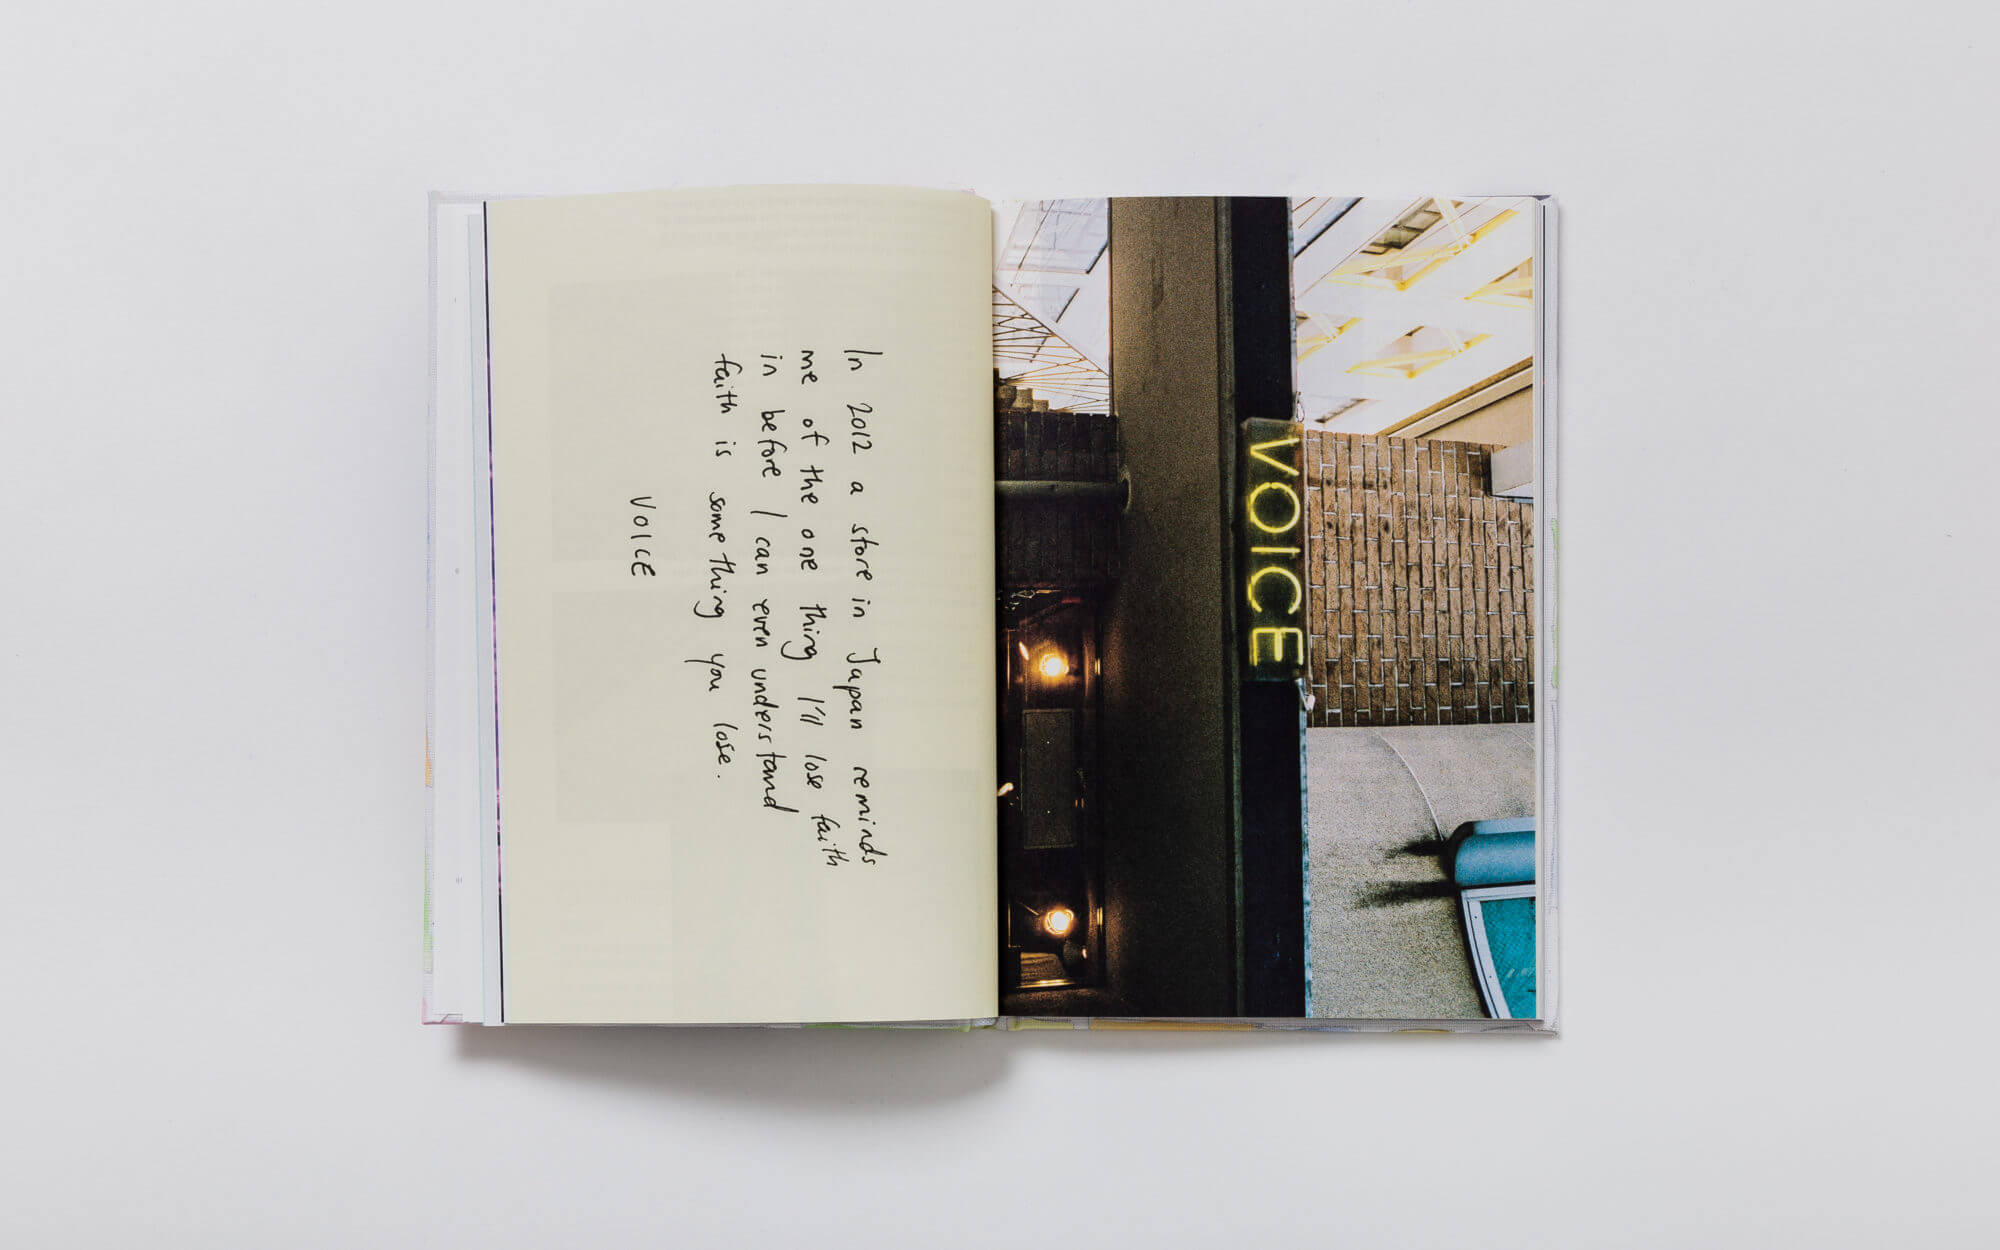 In 2012 a store in Japan reminds
me of the one thing I'll lose faith
in before I can even understand
faith is something you lose.
VOICE
VOICE